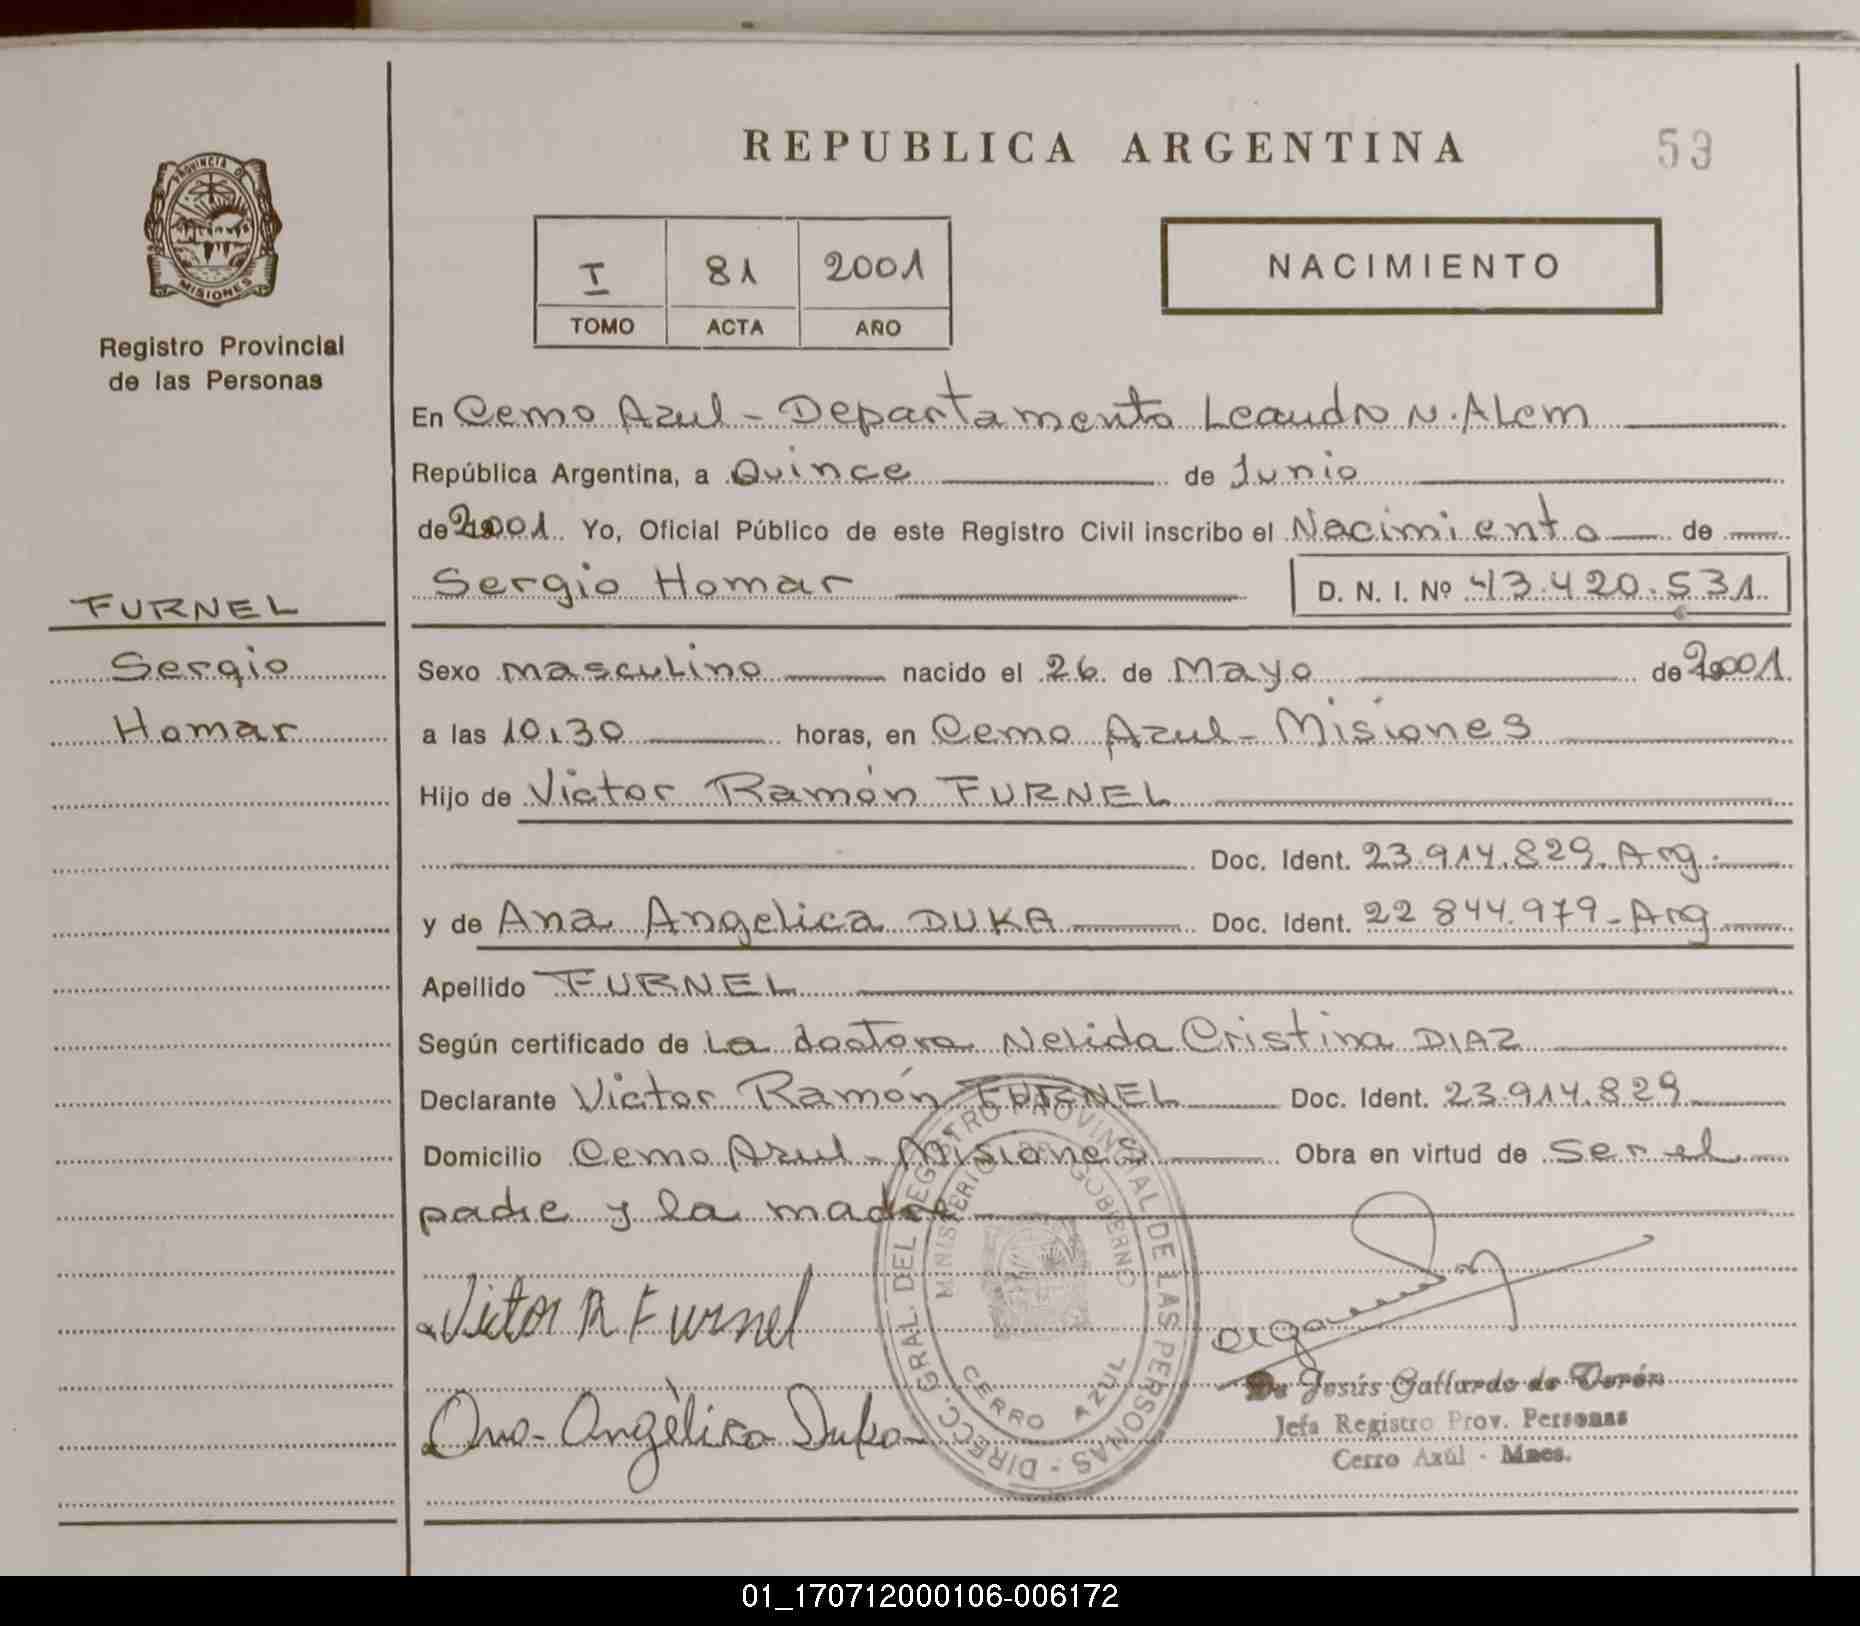 REPUBLICA ARGENTINA
53
PROVINCIA DE
MISIONES
Registro Provincial
de las Personas
I 81 2001
TOMO ACTA AÑO
NACIMIENTO
En Cerro Azul - Departamento Leandro N. Alem
República Argentina, a Quince de Junio
de 2001 Yo, Oficial Público de este Registro Civil inscribo el Nacimiento de
Sergio Homar D. N. I. Nº 43.420.531
FURNEL
Sergio
Homar
Sexo masculino nacido el 26 de Mayo de 2001
a las 10,30 horas, en Cerro Azul - Misiones
Hijo de Victor Ramón FURNEL
Doc. Ident. 23.914.829.Arg.
y de Ana Angelica DUKA Doc. Ident. 22 844.979-Arg
Apellido FURNEL
Según certificado de La doctora Nelida Cristina DIAZ
Declarante Victor Ramón FURNEL Doc. Ident. 23.914.829
Domicilio Cerro Azul - Misiones Obra en virtud de Ser el
padre y la madre
Victor R Furnel
Ana Angélica Duka
DIRECC. GRAL. DEL REGISTRO PROVINCIAL DE LAS PERSONAS -
MINISTERIO DE GOBIERNO
CERRO AZUL
Jesús Gallardo de
Jefa Registro Prov. Personas
Cerro Azúl - Mnes.
01_170712000106-006172